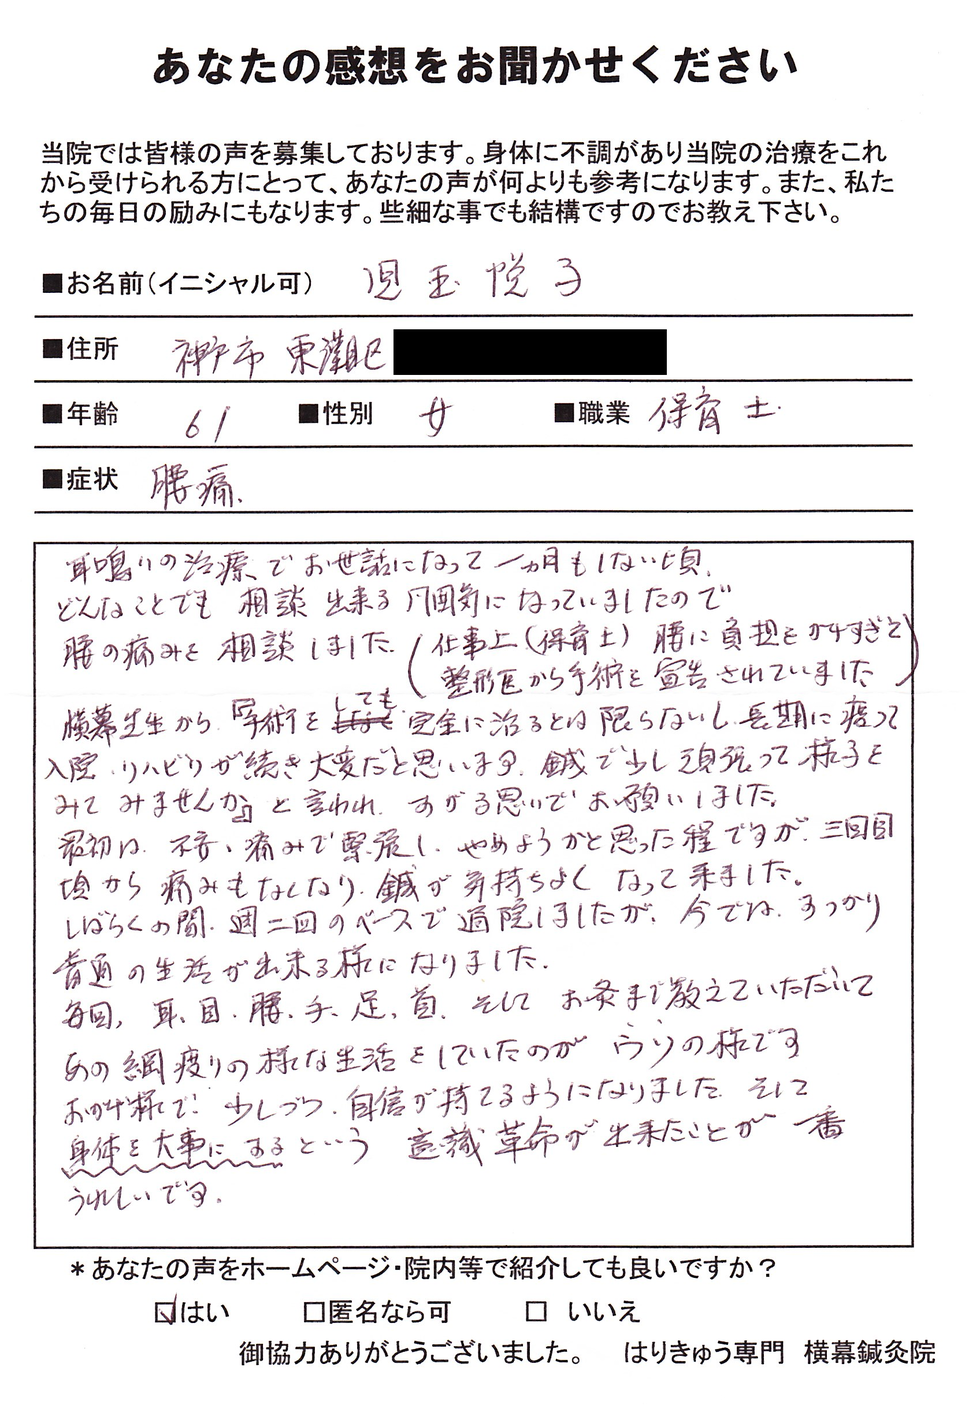 あなたの感想をお聞かせください
当院では皆様の声を募集しております。身体に不調があり当院の治療をこれ
から受けられる方にとって、あなたの声が何よりも参考になります。また、私た
ちの毎日の励みにもなります。些細な事でも結構ですのでお教え下さい。
■お名前（イニシャル可） 児玉 悦子
■住所 神戸市 東灘区
■年齢 61 ■性別 女 ■職業 保育士
■症状 腰痛
耳鳴りの治療でお世話になって一ヵ月もしない頃、
どんなことでも 相談出来る 雰囲気になっていましたので
腰の痛みを 相談しました（仕事上（保育士）腰に負担をかけすぎと
整形医から手術を宣告されていました）
横幕先生から『手術をしても 完全に治るとは限らないし、長期に渡って
入院、リハビリが続き大変だと思います。鍼で少し頑張って様子を
みてみませんか』と言われ、すがる思いでお願いしました。
最初は、不安、痛みで緊張し、やめようかと思った程ですが、三回目
頃から 痛みもなくなり、鍼が気持ちよく なって来ました。
しばらくの間、週二回のペースで通院しましたが、今では、すっかり
普通の生活が出来る様になりました。
毎回、耳、目、腰、手、足、首、そして お灸まで教えていただいて
あの綱渡りの様な生活をしていたのが ウソの様です
おかげ様で！少しづつ、自信が持てるようになりました。そして
身体を大事にするという 意識革命が出来たことが 一番
うれしいです。
＊あなたの声をホームページ・院内等で紹介しても良いですか？
☑はい □匿名なら可 □ いいえ
御協力ありがとうございました。 はりきゅう専門 横幕鍼灸院